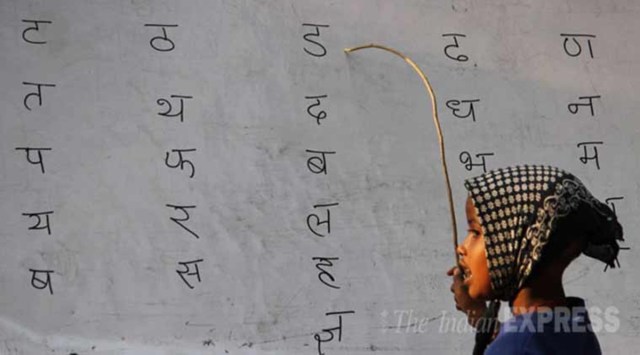 ट ठ ड ढ ण
त थ द ध न
प फ ब भ म
य ल
ष स
The Indian EXPRESS